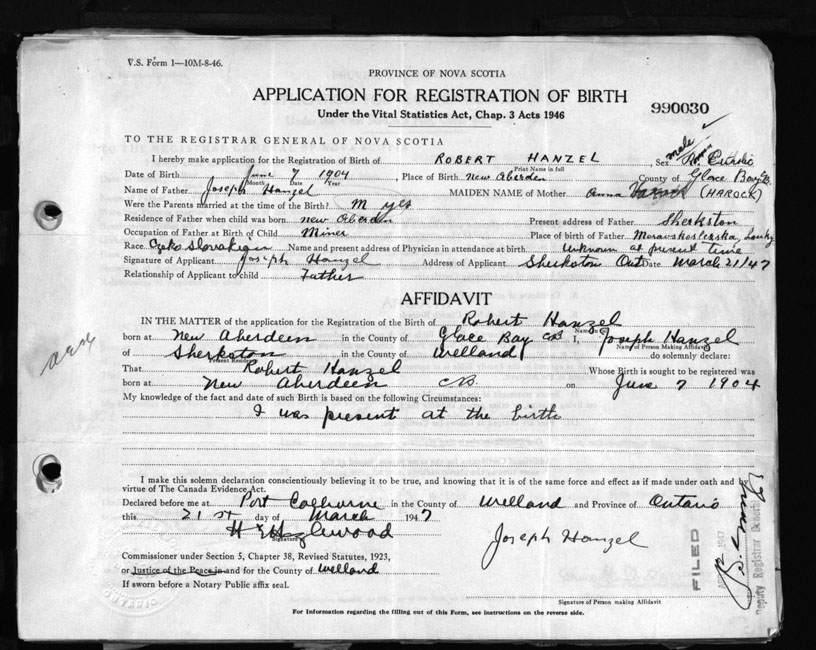 V.S. Form 1—10M-8-46.
PROVINCE OF NOVA SCOTIA
APPLICATION FOR REGISTRATION OF BIRTH
990030
Under the Vital Statistics Act, Chap. 3 Acts 1946
TO THE REGISTRAR GENERAL OF NOVA SCOTIA
male
I hereby make application for the Registration of Birth of ROBERT HANZEL, Sex
Print Name in full
Date of Birth June 7 1904, Place of Birth New Aberden County of Glace Bay
Month Date Year
Name of Father Joseph Hanzel MAIDEN NAME of Mother Anna (HAROCK)
Were the Parents married at the time of the Birth? M yes
Residence of Father when child was born new Aberden Present address of Father Sherkston
Occupation of Father at Birth of Child Miner Place of birth of Father
Race Czeko Slovakian Name and present address of Physician in attendance at birth unknown at present time
Signature of Applicant Joseph Hanzel Address of Applicant Sherkston Ont Date March 21/47
Relationship of Applicant to child Father
AFFIDAVIT
IN THE MATTER of the application for the Registration of the Birth of Robert Hanzel
Name in
born at New Aberdeen in the County of Glace Bay CB I, Joseph Hanzel
Name of Person Making Affidavit
of Sherkston in the County of Welland do solemnly declare:
Present Residence
That Robert Hanzel Whose Birth is sought to be registered was
born at New Aberdeen CB. on June 7 1904
My knowledge of the fact and date of such Birth is based on the following Circumstances:
I was present at the birth
I make this solemn declaration conscientiously believing it to be true, and knowing that it is of the same force and effect as if made under oath and by
virtue of The Canada Evidence Act.
Declared before me at Port Colborne in the County of Welland and Province of Ontario
this 21st day of March 1947
H E Hazlewood
Signature
Joseph Hanzel
Commissioner under Section 5, Chapter 38, Revised Statutes, 1923,
or Justice of the Peace in and for the County of Welland
If sworn before a Notary Public affix seal.
Signature of Person making Affidavit
For Information regarding the filling out of this Form, see instructions on the reverse side.
FILED
1947
Deputy Registrar General
ONTARIO